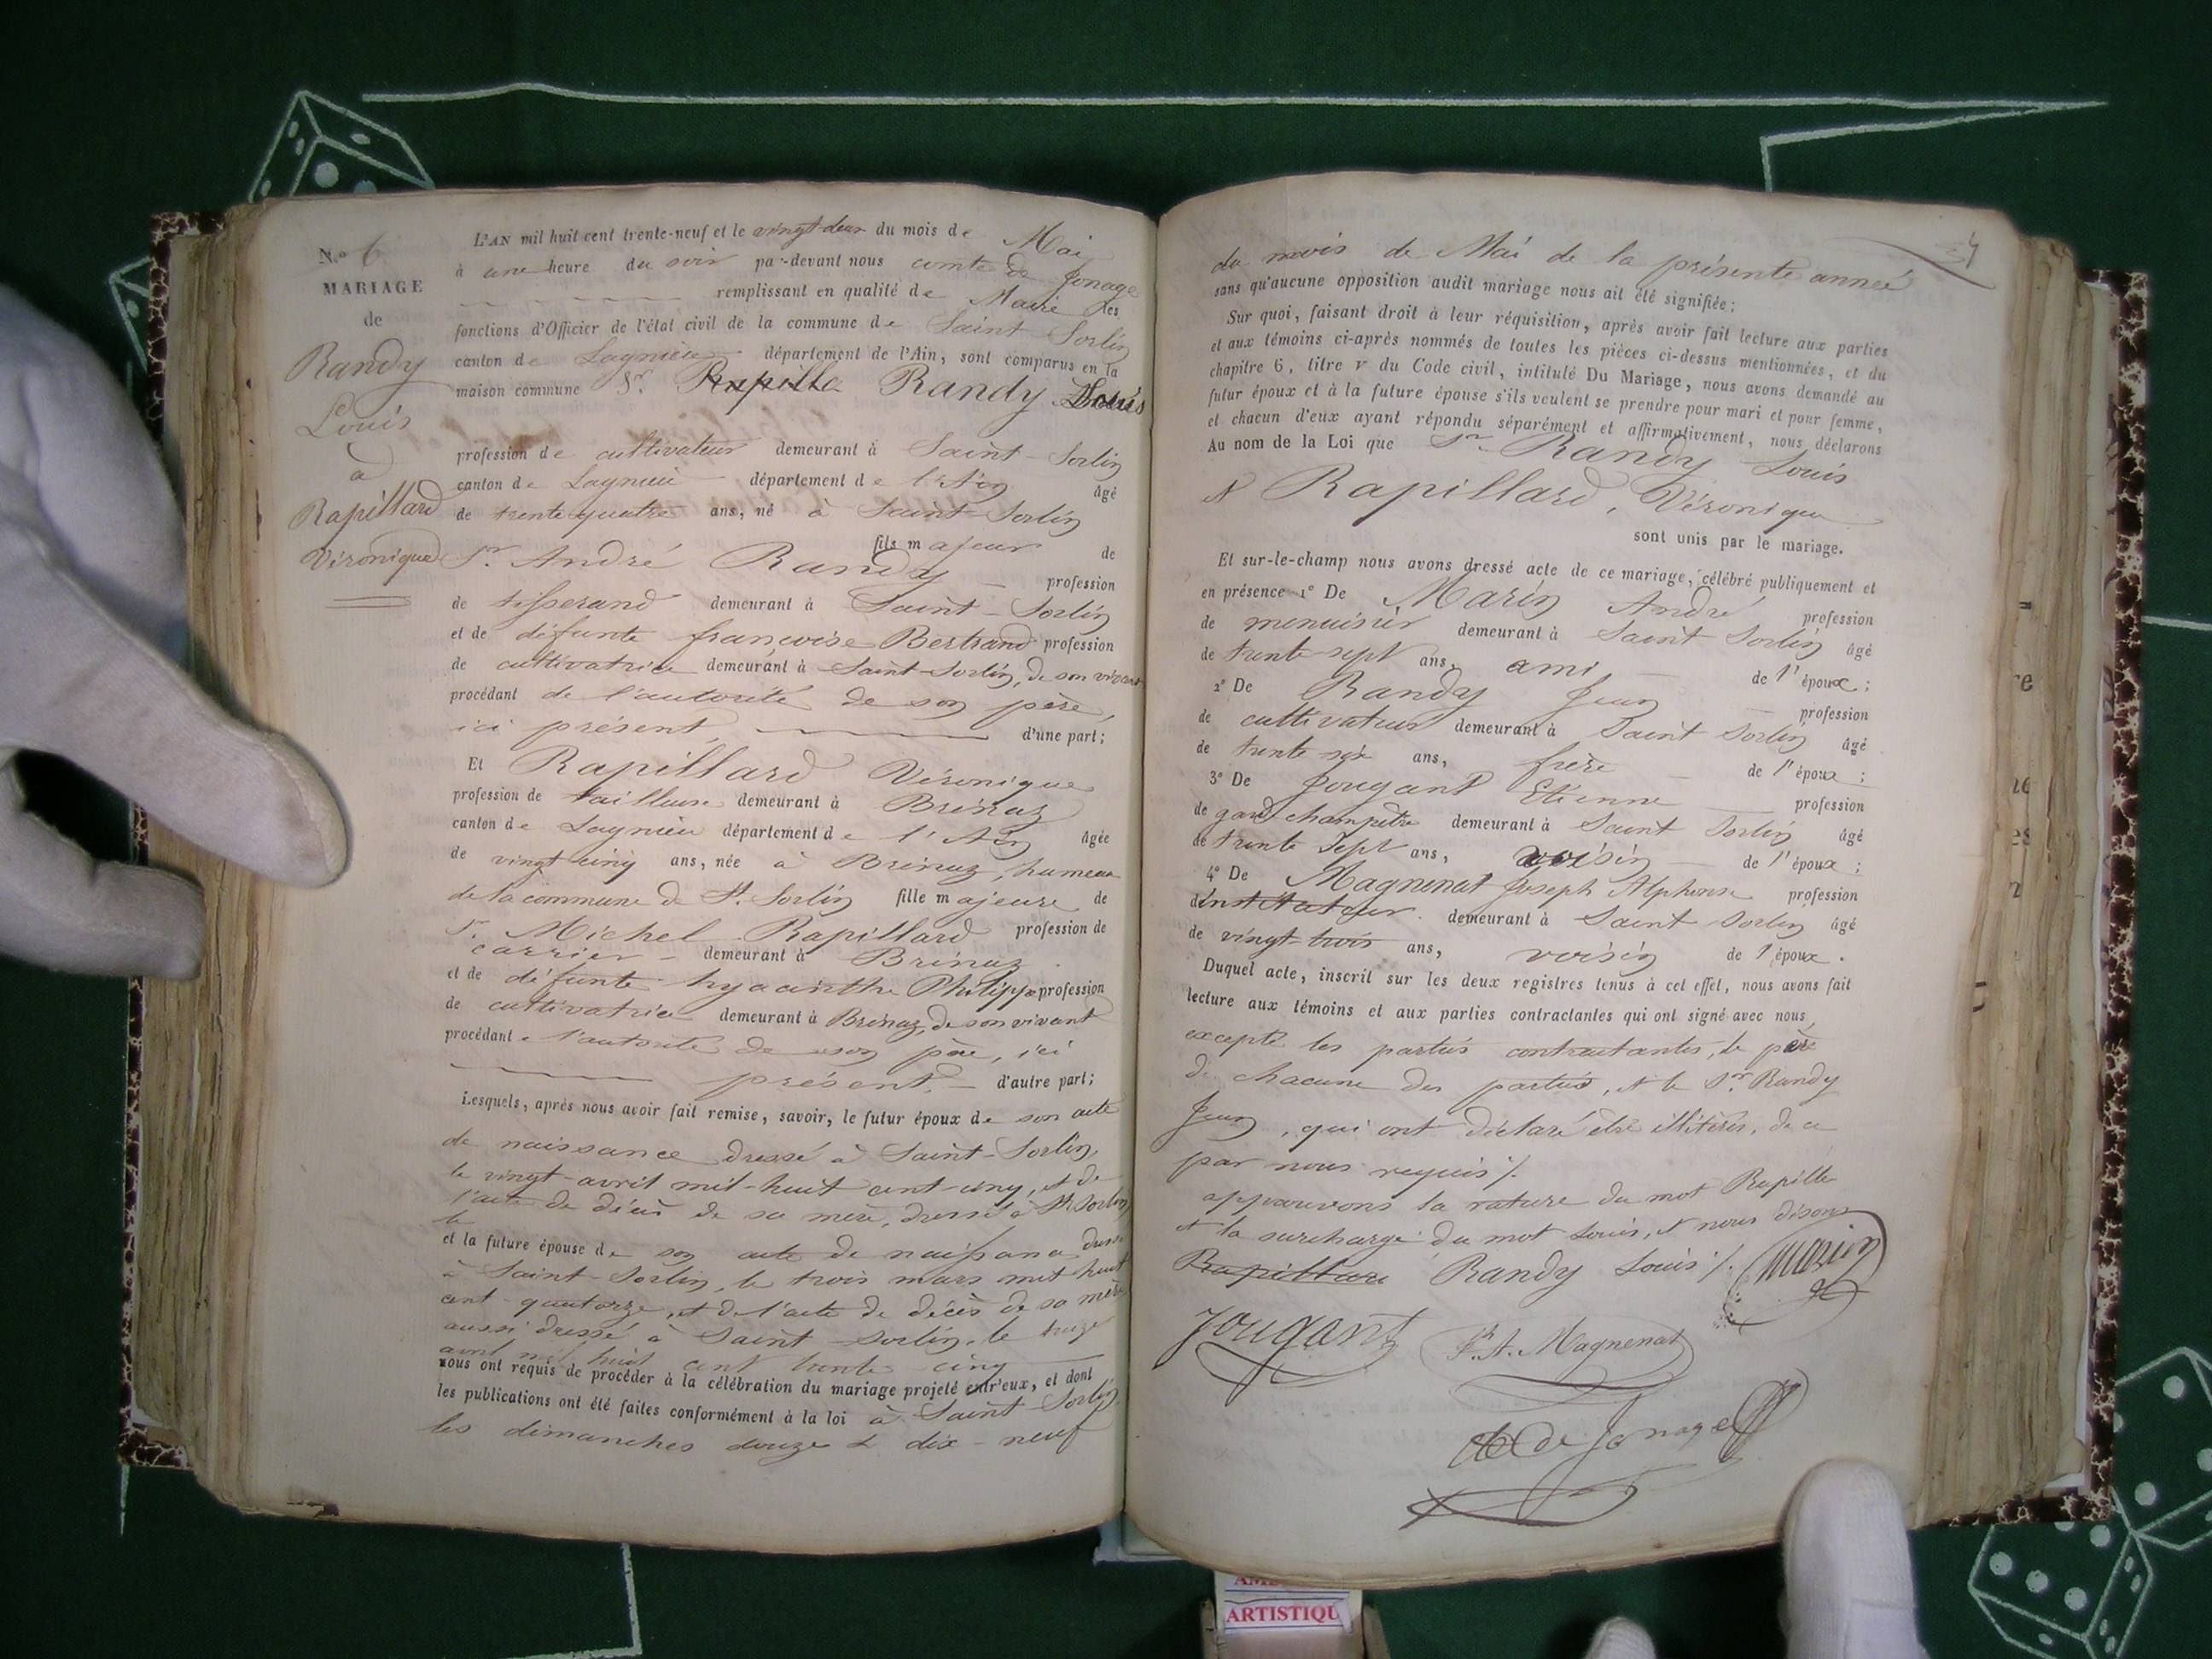 N.º 6
MARIAGE
de
Randy
Louis
à
Rapillard
Véronique
L'AN mil huit cent trente-neuf et le vingt-deux du mois de Mai
à une heure du soir par-devant nous comte de Jonage
remplissant en qualité de Maire les
fonctions d'Officier de l'état civil de la commune de Saint Sorlin
canton de Lagnieu département de l'Ain, sont comparus en la
maison commune Sr. Rapilla Randy Louis
profession de cultivateur demeurant à Saint-Sorlin
canton de Lagnieu département de l'Ain âgé
de trente quatre ans, né à Saint-Sorlin
fils majeur de
Sr. André Randy profession
de tisserand demeurant à Saint-Sorlin
et de défunte françoise Bertrand profession
de cultivatrice demeurant à Saint-Sorlin, de son vivant
procédant de l'autorité de son père,
ici présent d'une part;
Et Rapillard Véronique
profession de tailleuse demeurant à Brénaz
canton de Lagnieu département de l'Ain âgée
de vingt-cinq ans, née à Brénaz, hameau
de la commune de St. Sorlin fille majeure de
Sr. Michel Rapillard profession de
carrier demeurant à Brénaz
et de défunte hyacinthe Philippe profession
de cultivatrice demeurant à Brénaz, de son vivant
procédant l'autorité de son père, ici
présent, d'autre part;
Lesquels, après nous avoir fait remise, savoir, le futur époux de son acte
de naissance dressé à Saint-Sorlin,
le vingt-avril mil-huit cent-cinq, et de
l'acte de décès de sa mère, dressé à St Sorlin
le
et la future épouse de son acte de naissance dressé
à Saint-Sorlin, le trois mars mil huit
cent-quatorze, et de l'acte de décès de sa mère
aussi dressé à Saint-Sorlin, le treize
avril mil huit cent trente cinq
nous ont requis de procéder à la célébration du mariage projeté entr'eux, et dont
les publications ont été faites conformément à la loi à Saint Sorlin
les dimanches douze & dix-neuf
du mois de Mai de la présente année
sans qu'aucune opposition audit mariage nous ait été signifiée;
Sur quoi, faisant droit à leur réquisition, après avoir fait lecture aux parties
et aux témoins ci-après nommés de toutes les pièces ci-dessus mentionnées, et du
chapitre 6, titre V du Code civil, intitulé Du Mariage, nous avons demandé au
futur époux et à la future épouse s'ils veulent se prendre pour mari et pour femme,
et chacun d'eux ayant répondu séparément et affirmativement, nous déclarons
Au nom de la Loi que Sr Randy Louis
et Rapillard, Véronique
sont unis par le mariage.
Et sur-le-champ nous avons dressé acte de ce mariage, célébré publiquement et
en présence 1º De Marin André profession
de menuisier demeurant à Saint Sorlin âgé
de trente sept ans, ami de l'époux;
2º De Randy Jean profession
de cultivateur demeurant à Saint Sorlin âgé
de trente six ans, frère de l'époux;
3º De Jougant Etienne profession
de garde champêtre demeurant à Saint Sorlin âgé
de trente Sept ans, voisin de l'époux;
4º De Magnenat Joseph Alphonse profession
d'instituteur demeurant à Saint Sorlin âgé
de vingt-trois ans, voisin de l'époux.
Duquel acte, inscrit sur les deux registres tenus à cet effet, nous avons fait
lecture aux témoins et aux parties contractantes qui ont signé avec nous,
excepté les parties contractantes, le père
de chacune des parties, et le Sr. Randy
Jean, qui ont déclaré être illitérés, de ce
par nous requis /.
approuvons la rature du mot Rapilla
et la surcharge du mot Louis, et nous disons
Rapillard Randy Louis /. Marin
Jougant J.h A. Magnenat
de Jonage
AM
ARTISTIQU